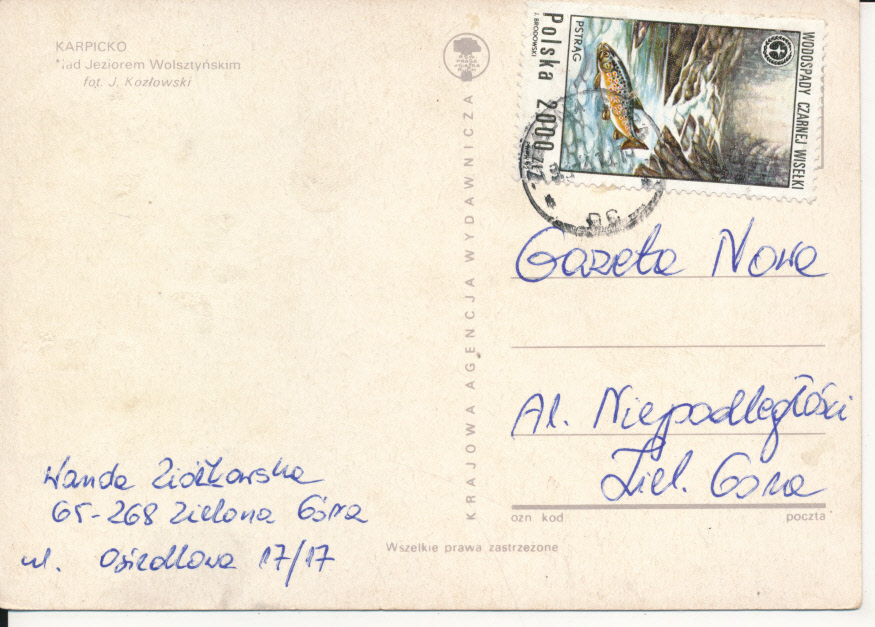 KARPICKO
Nad Jeziorem Wolsztyńskim
fot. J. Kozłowski
KRAJOWA AGENCJA WYDAWNICZA
Polska 2000
J. BRODOWSKI
PSTRĄG
WODOSPADY CZARNEJ WISEŁKI
Gazeta Nowa
Al. Niepodległości
Ziel. Góra
ozn kod poczta
Wanda Ziółkowska
65-268 Zielona Góra
ul. Osiedlowa 17/17
Wszelkie prawa zastrzeżone